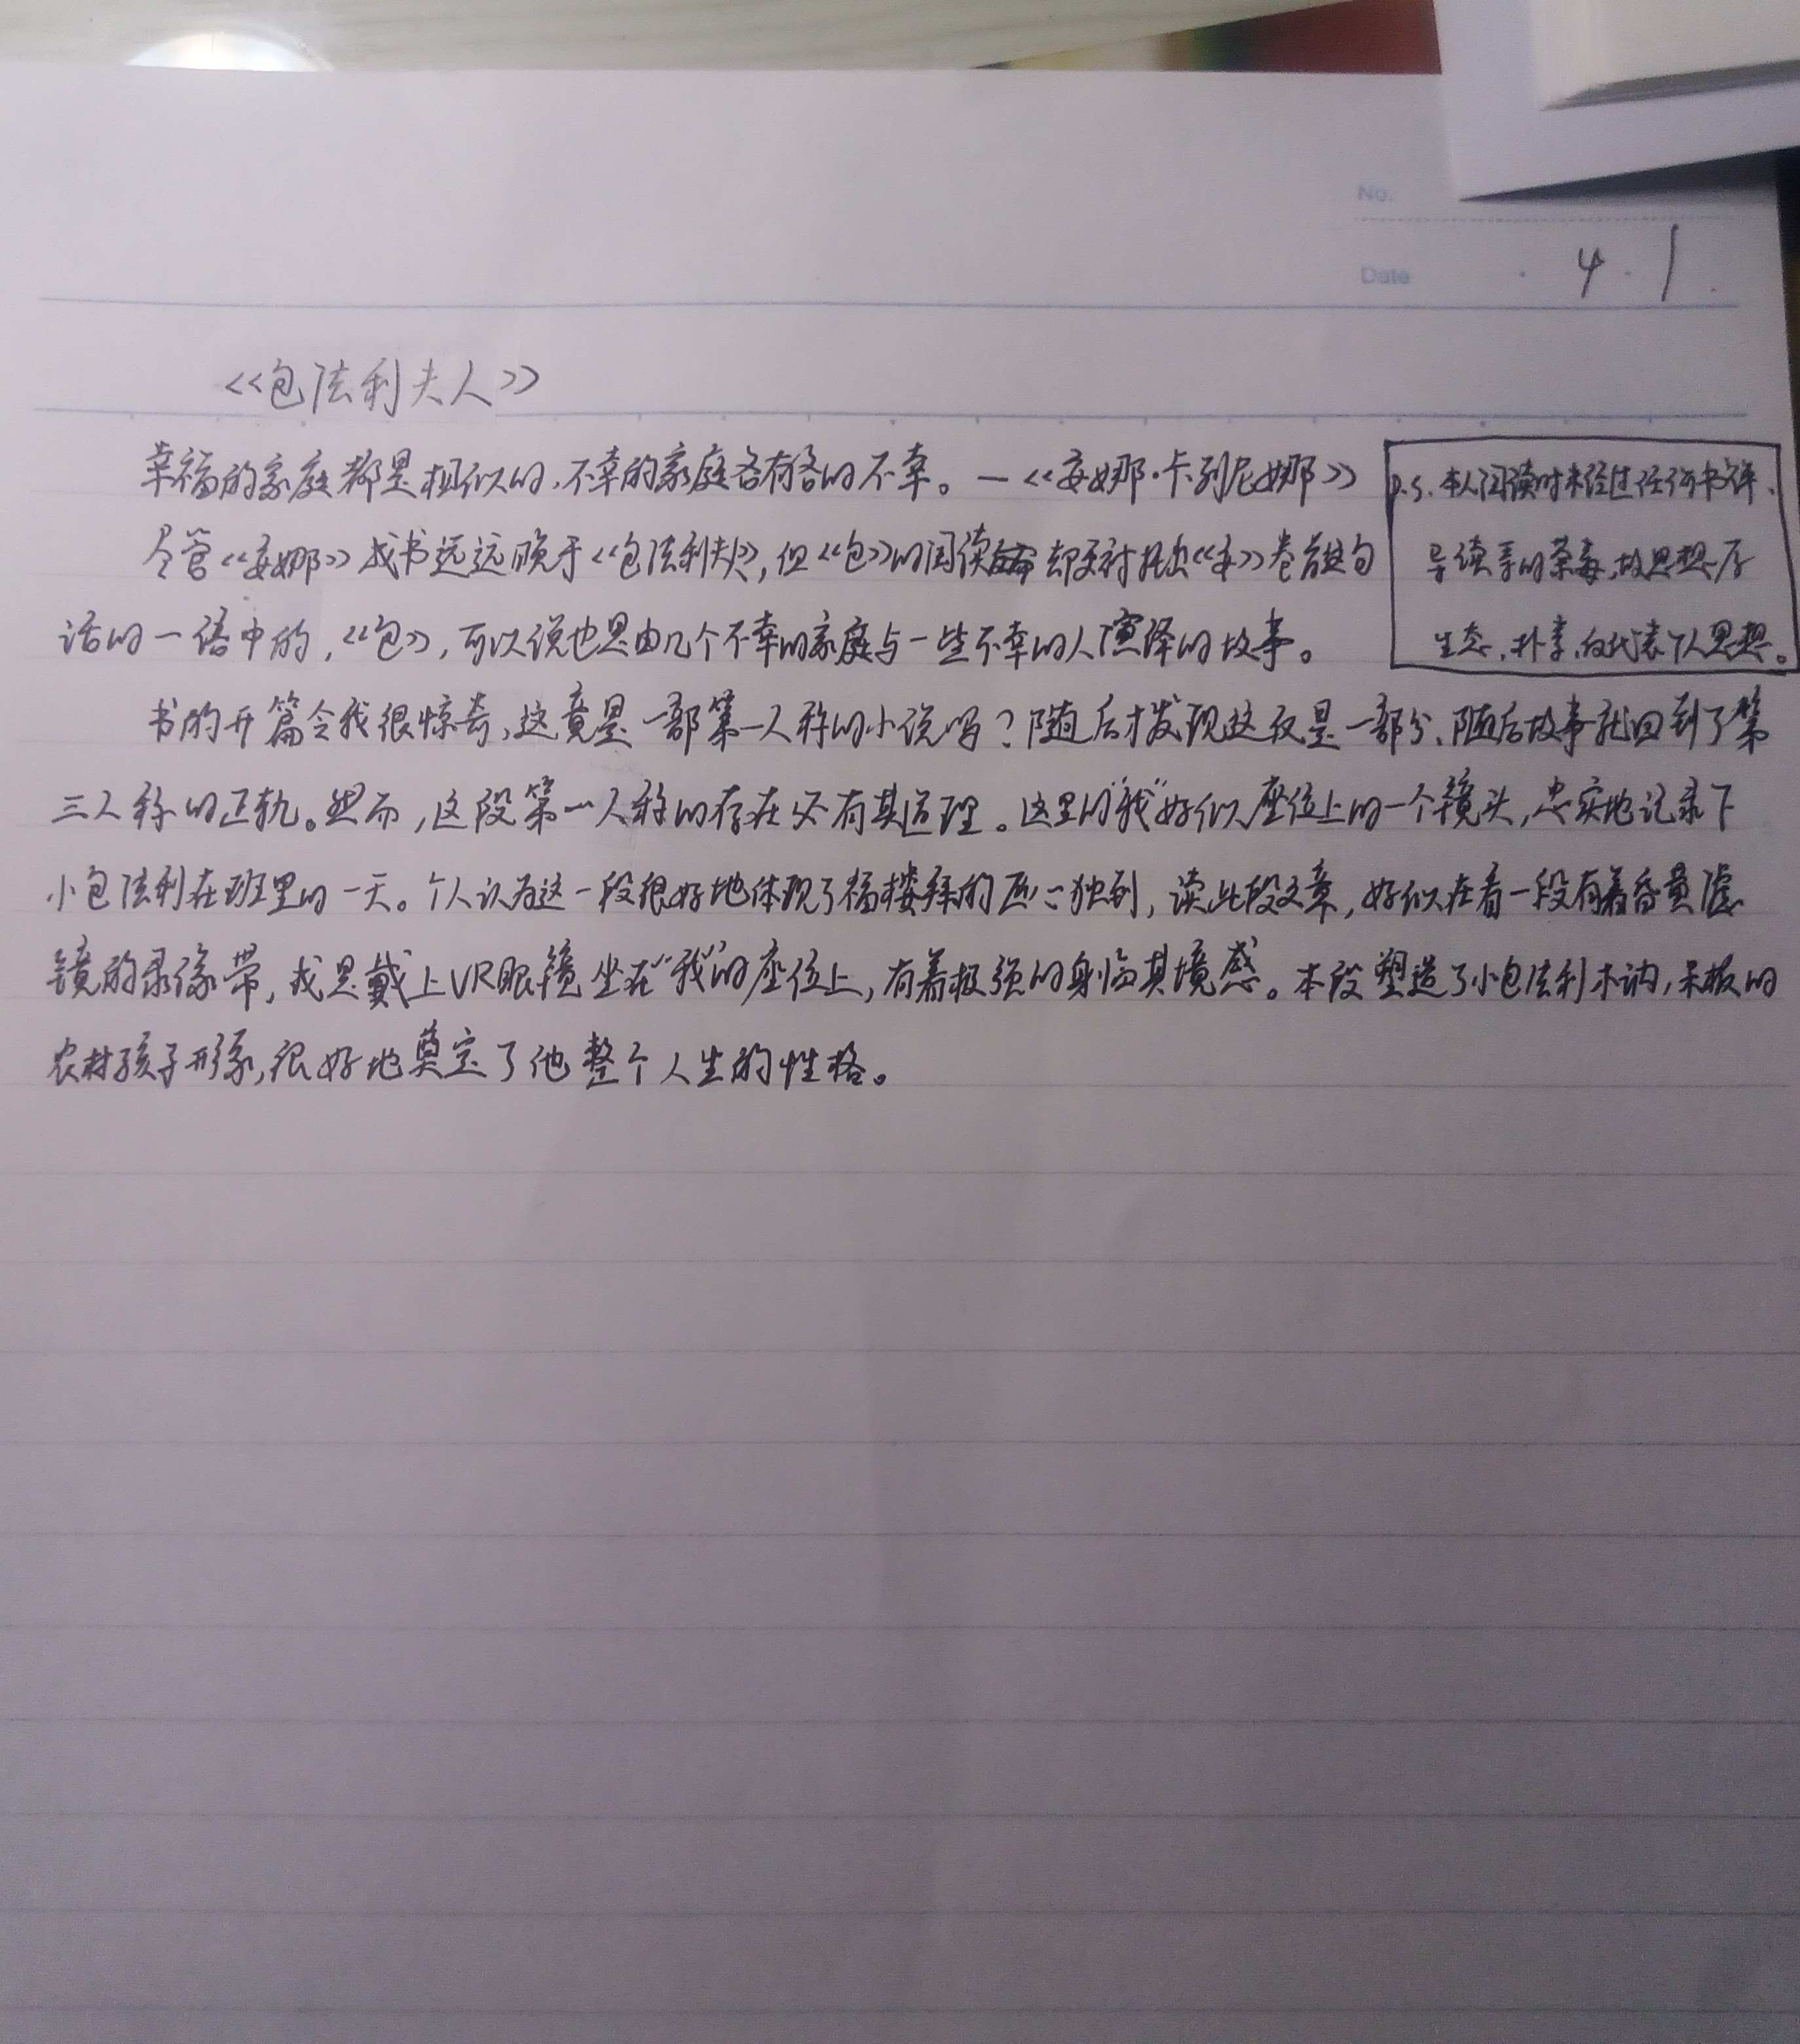 No.
Date · 4 · 1 .
<<包法利夫人>>
幸福的家庭都是相似的，不幸的家庭各有各的不幸。—<<安娜·卡列尼娜>>
尽管<<安娜>>成书远远晚于<<包法利夫人>>，但<<包>>的阅读却更衬托出<<安>>卷首这句
话的一语中的，<<包>>，可以说也是由几个不幸的家庭与一些不幸的人演绎的故事。
P.S. 本人阅读时未经过任何书评、
导读等的荼毒，故思想原
生态，朴素，仅代表个人思想。
书的开篇令我很惊奇，这竟是一部第一人称的小说吗？随后才发现这仅是一部分，随后故事就回到了第
三人称的正轨。然而，这段第一人称的存在必有其道理。这里的"我"好似座位上的一个镜头，忠实地记录下
小包法利在班里的一天。个人认为这一段很好地体现了福楼拜的匠心独到，读此段文章，好似在看一段有着昏黄滤
镜的录像带，或是戴上VR眼镜坐在"我"的座位上，有着极强的身临其境感。本段塑造了小包法利木讷，呆板的
农村孩子形象，很好地奠定了他整个人生的性格。